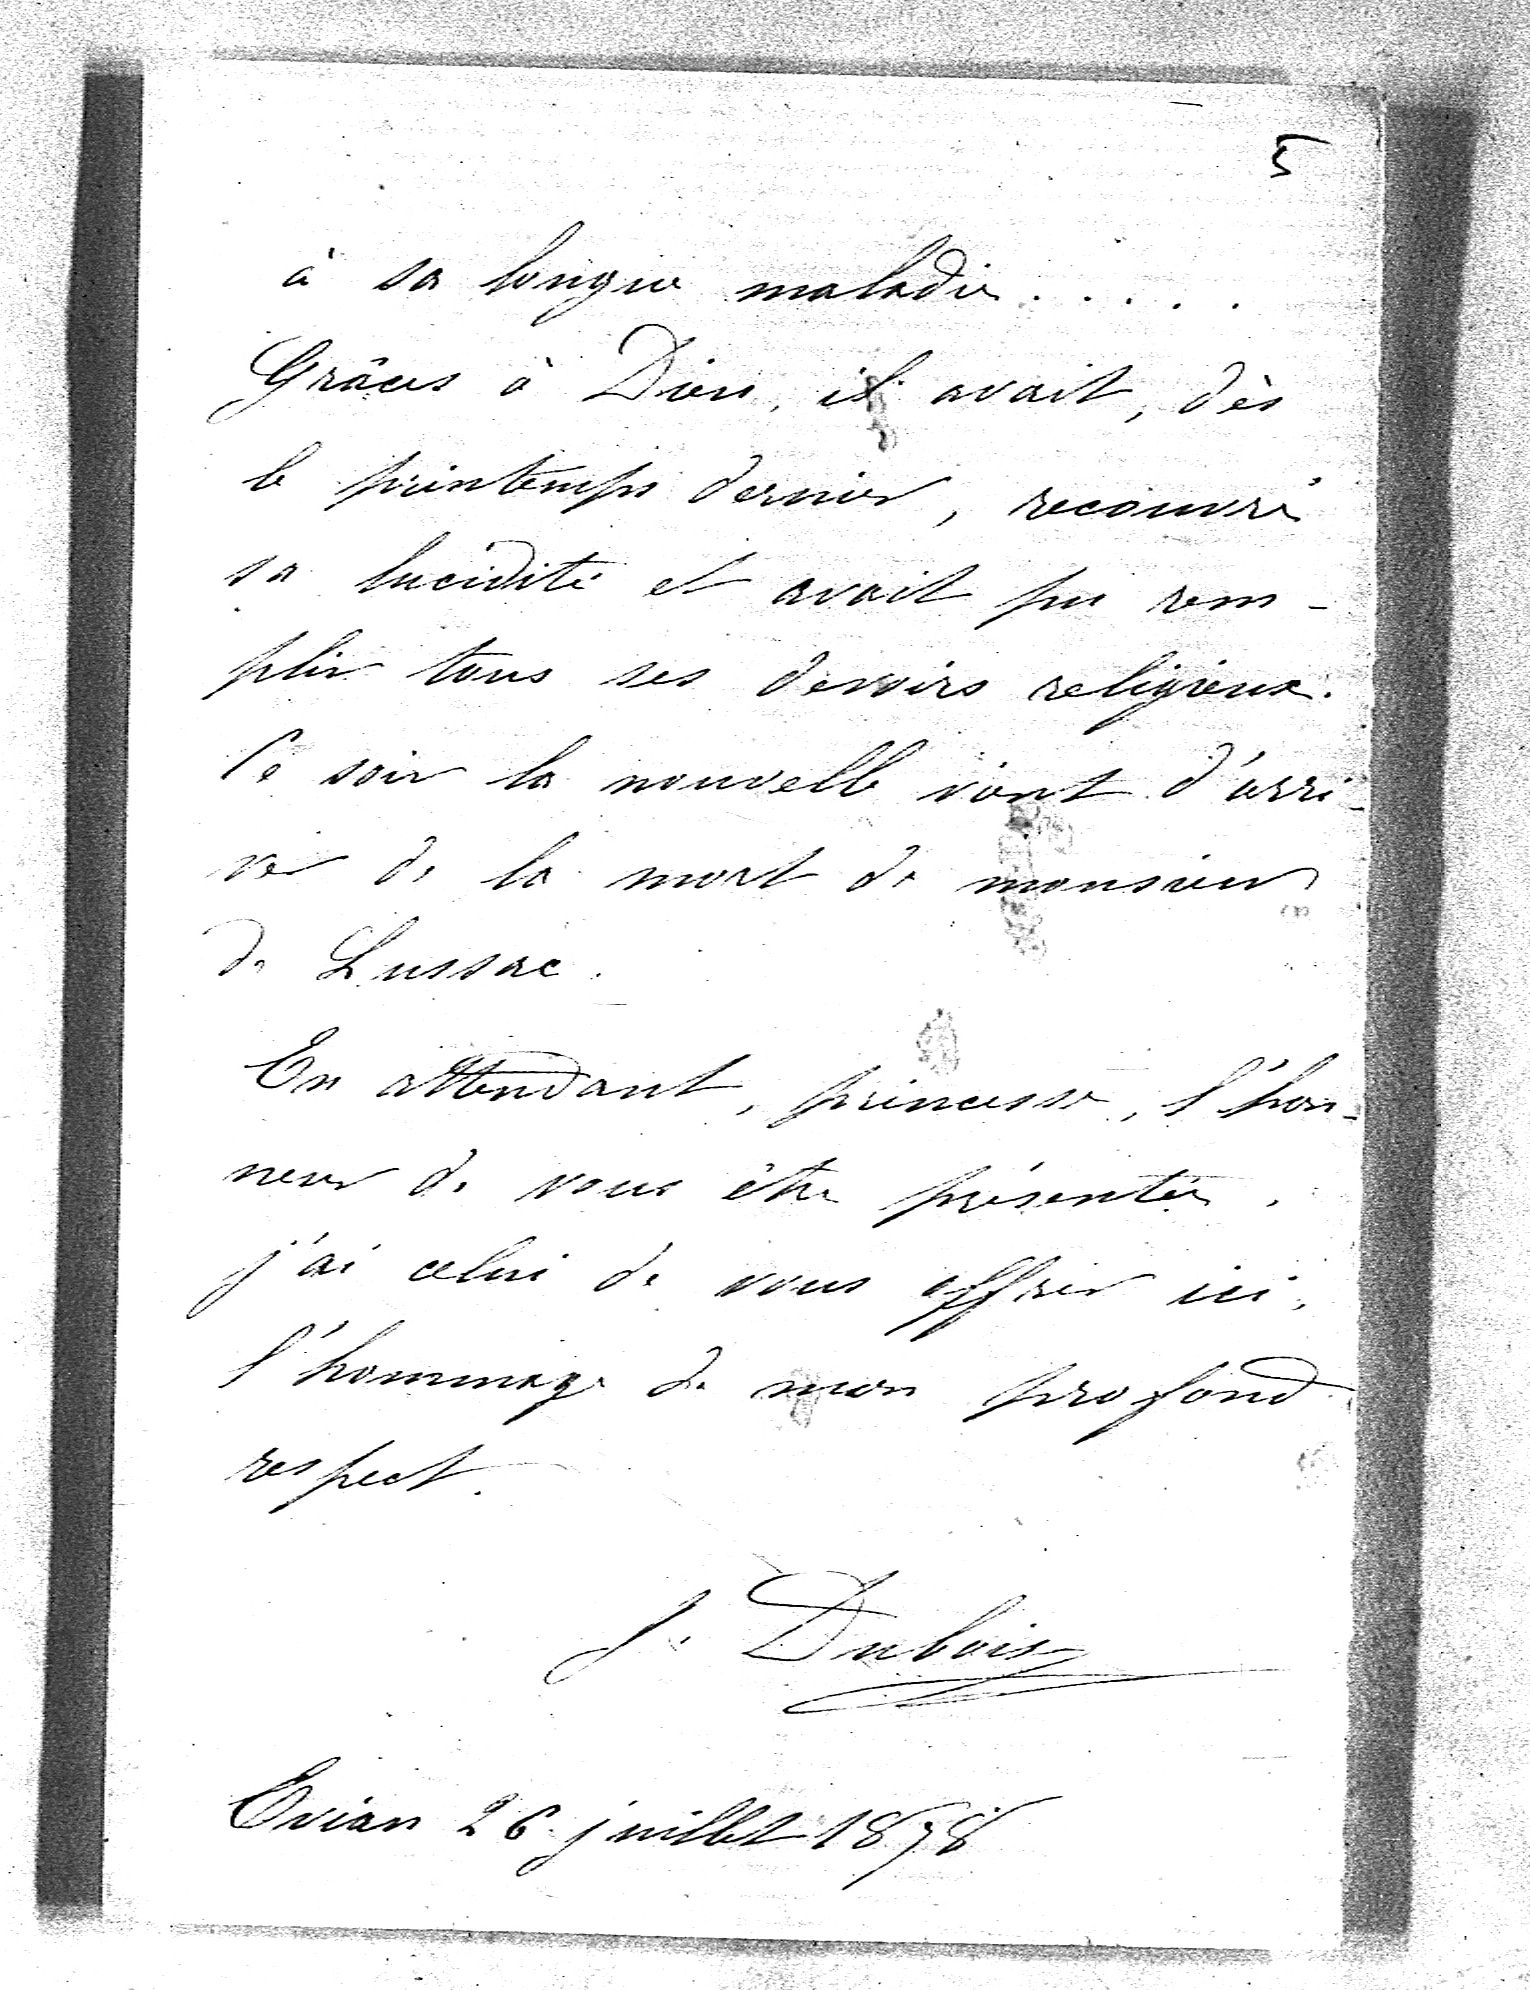 5
à sa longue maladie.....
Grâces à Dieu, il avait, dès
le printemps dernier, recouvré
sa lucidité et avait pu rem-
plir tous ses devoirs religieux.
Ce soir la nouvelle vient d'arri-
ver de la mort de monsieur
de Lussac.
En attendant, princesse, l'hon-
neur de vous être présentée,
j'ai celui de vous offrir ici,
l'hommage de mon profond
respect.
J. Dubois
Evian 26 juillet 1878